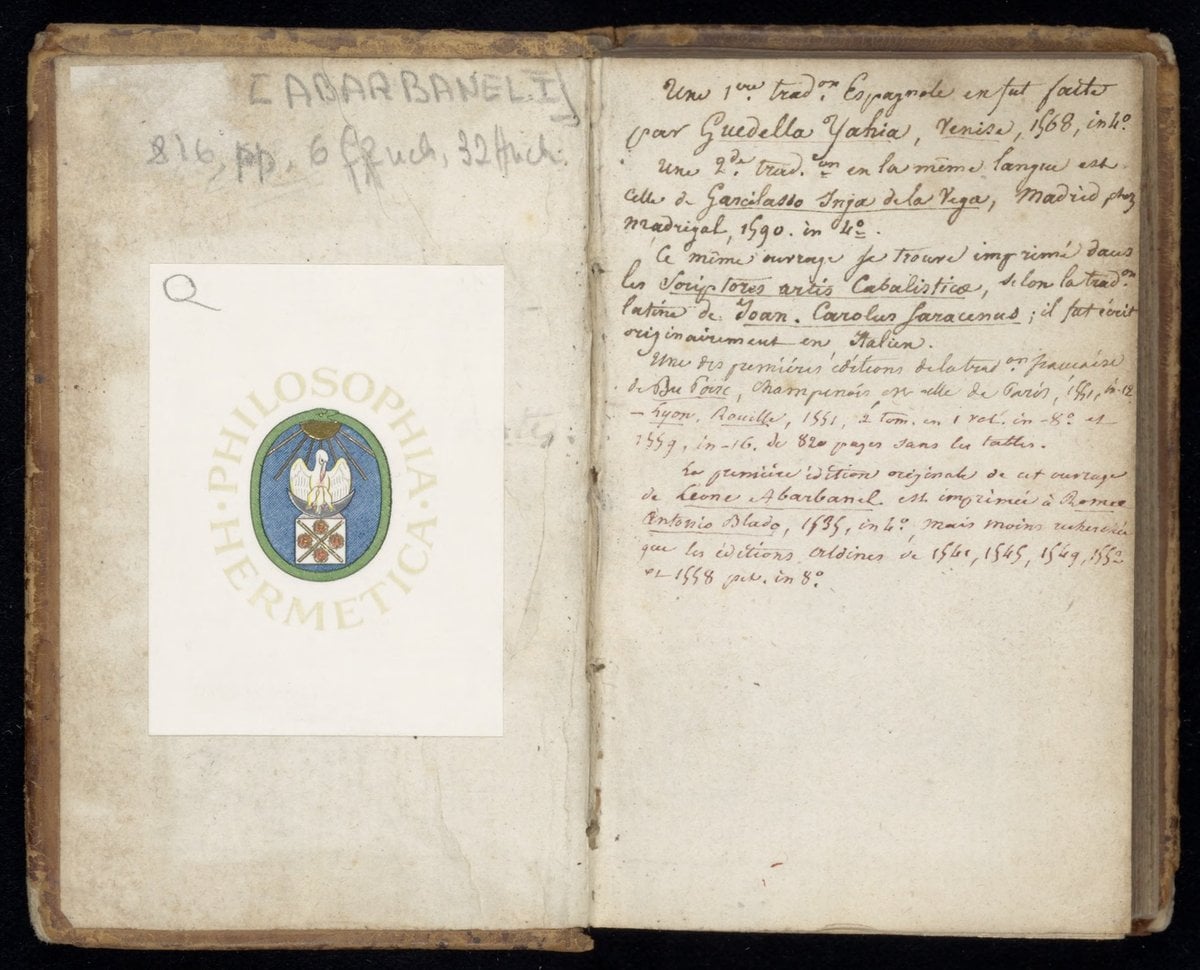 [ABARBANEL. I]
816, pp, 6 ff nch, 32 ff nch.
Q
· PHILOSOPHIA · HERMETICA
Une 1ere tradon. Espagnole en fut faite
par Guedella Yahia, Venise, 1568, in 4o.
Une 2de. trad.on en la même langue est
celle de Garcilasso Inja de la Vega, Madrid, chez
Madrigal, 1590. in 4o.
Ce même ouvrage se trouve imprimé dans
les Scriptores artis Cabalisticæ, selon la tradon.
latine de Joan. Carolus Saracenus ; il fut écrit
originairement en Italien.
Une des premières éditions de la tradon française
de Du Parc, champenois est celle de Paris, 1551, in-12
– Lyon, Rouille, 1551, 2 tom. en 1 vol. in-8o et
1559, in-16. de 820 pages sans les tables.
La première édition originale de cet ouvrage
de Léone Abarbanel est imprimée à Rome
Antonio Blado, 1535, in 4o, mais moins recherchée
que les éditions aldines de 1541, 1545, 1549, 1552
et 1558 pet. in 8o.